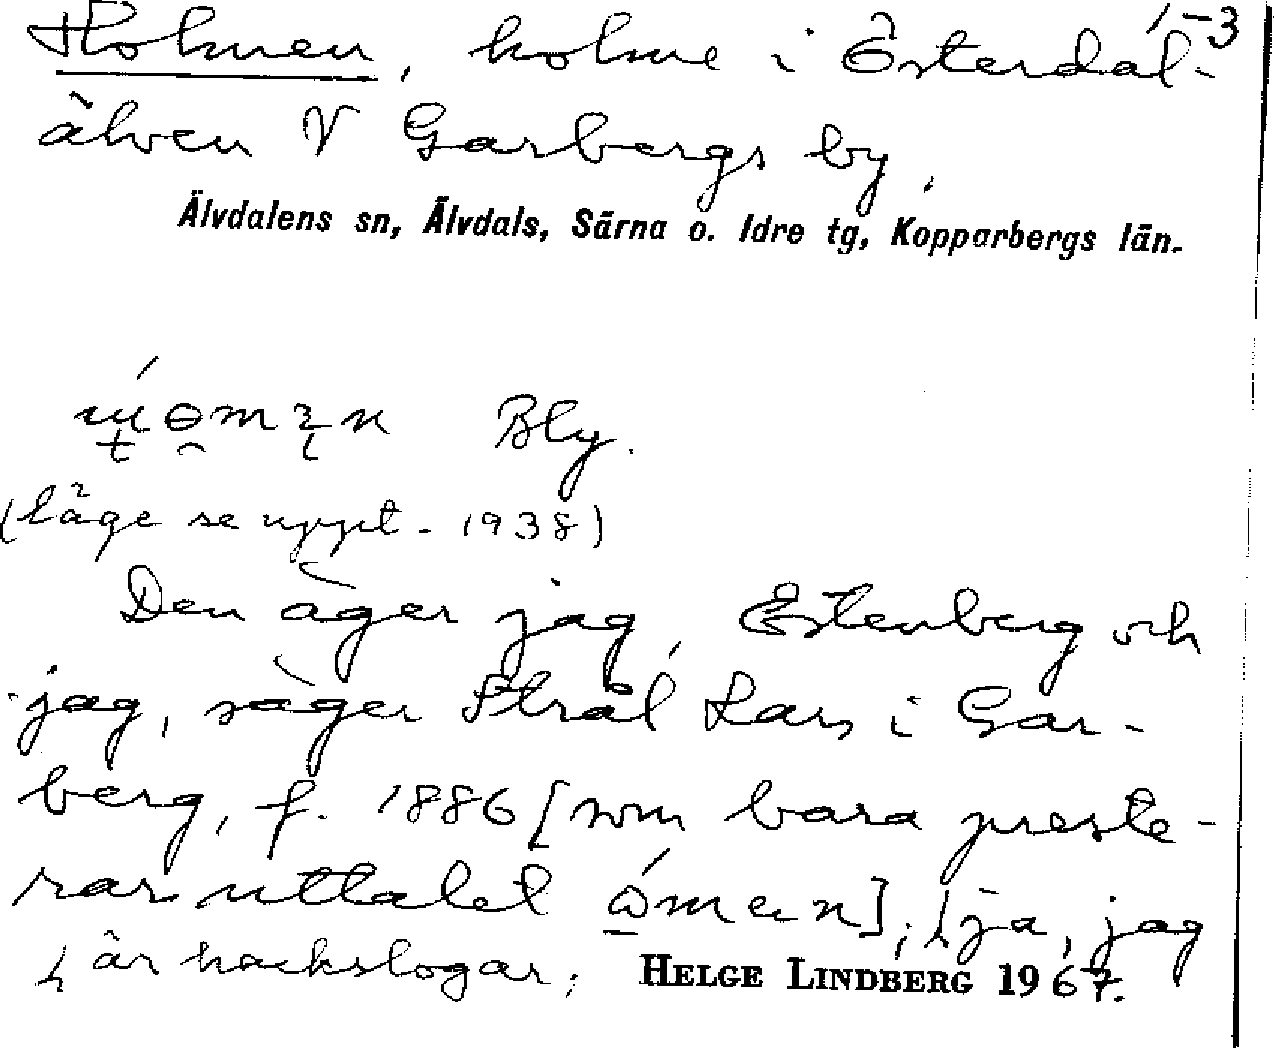 1-3
Holmen, holme i Österdal-
älven V Garbergs by,
Älvdalens sn, Älvdals, Särna o. Idre tg, Kopparbergs län.
Bly.
(läge se uppt. 1938)
Den äger jag, Estenberg och
jag, säger Strål Lars i Gar-
berg, f. 1886 [som bara preste-
rar uttalet], ja, jag
är hackslogar;
HELGE LINDBERG 1967.